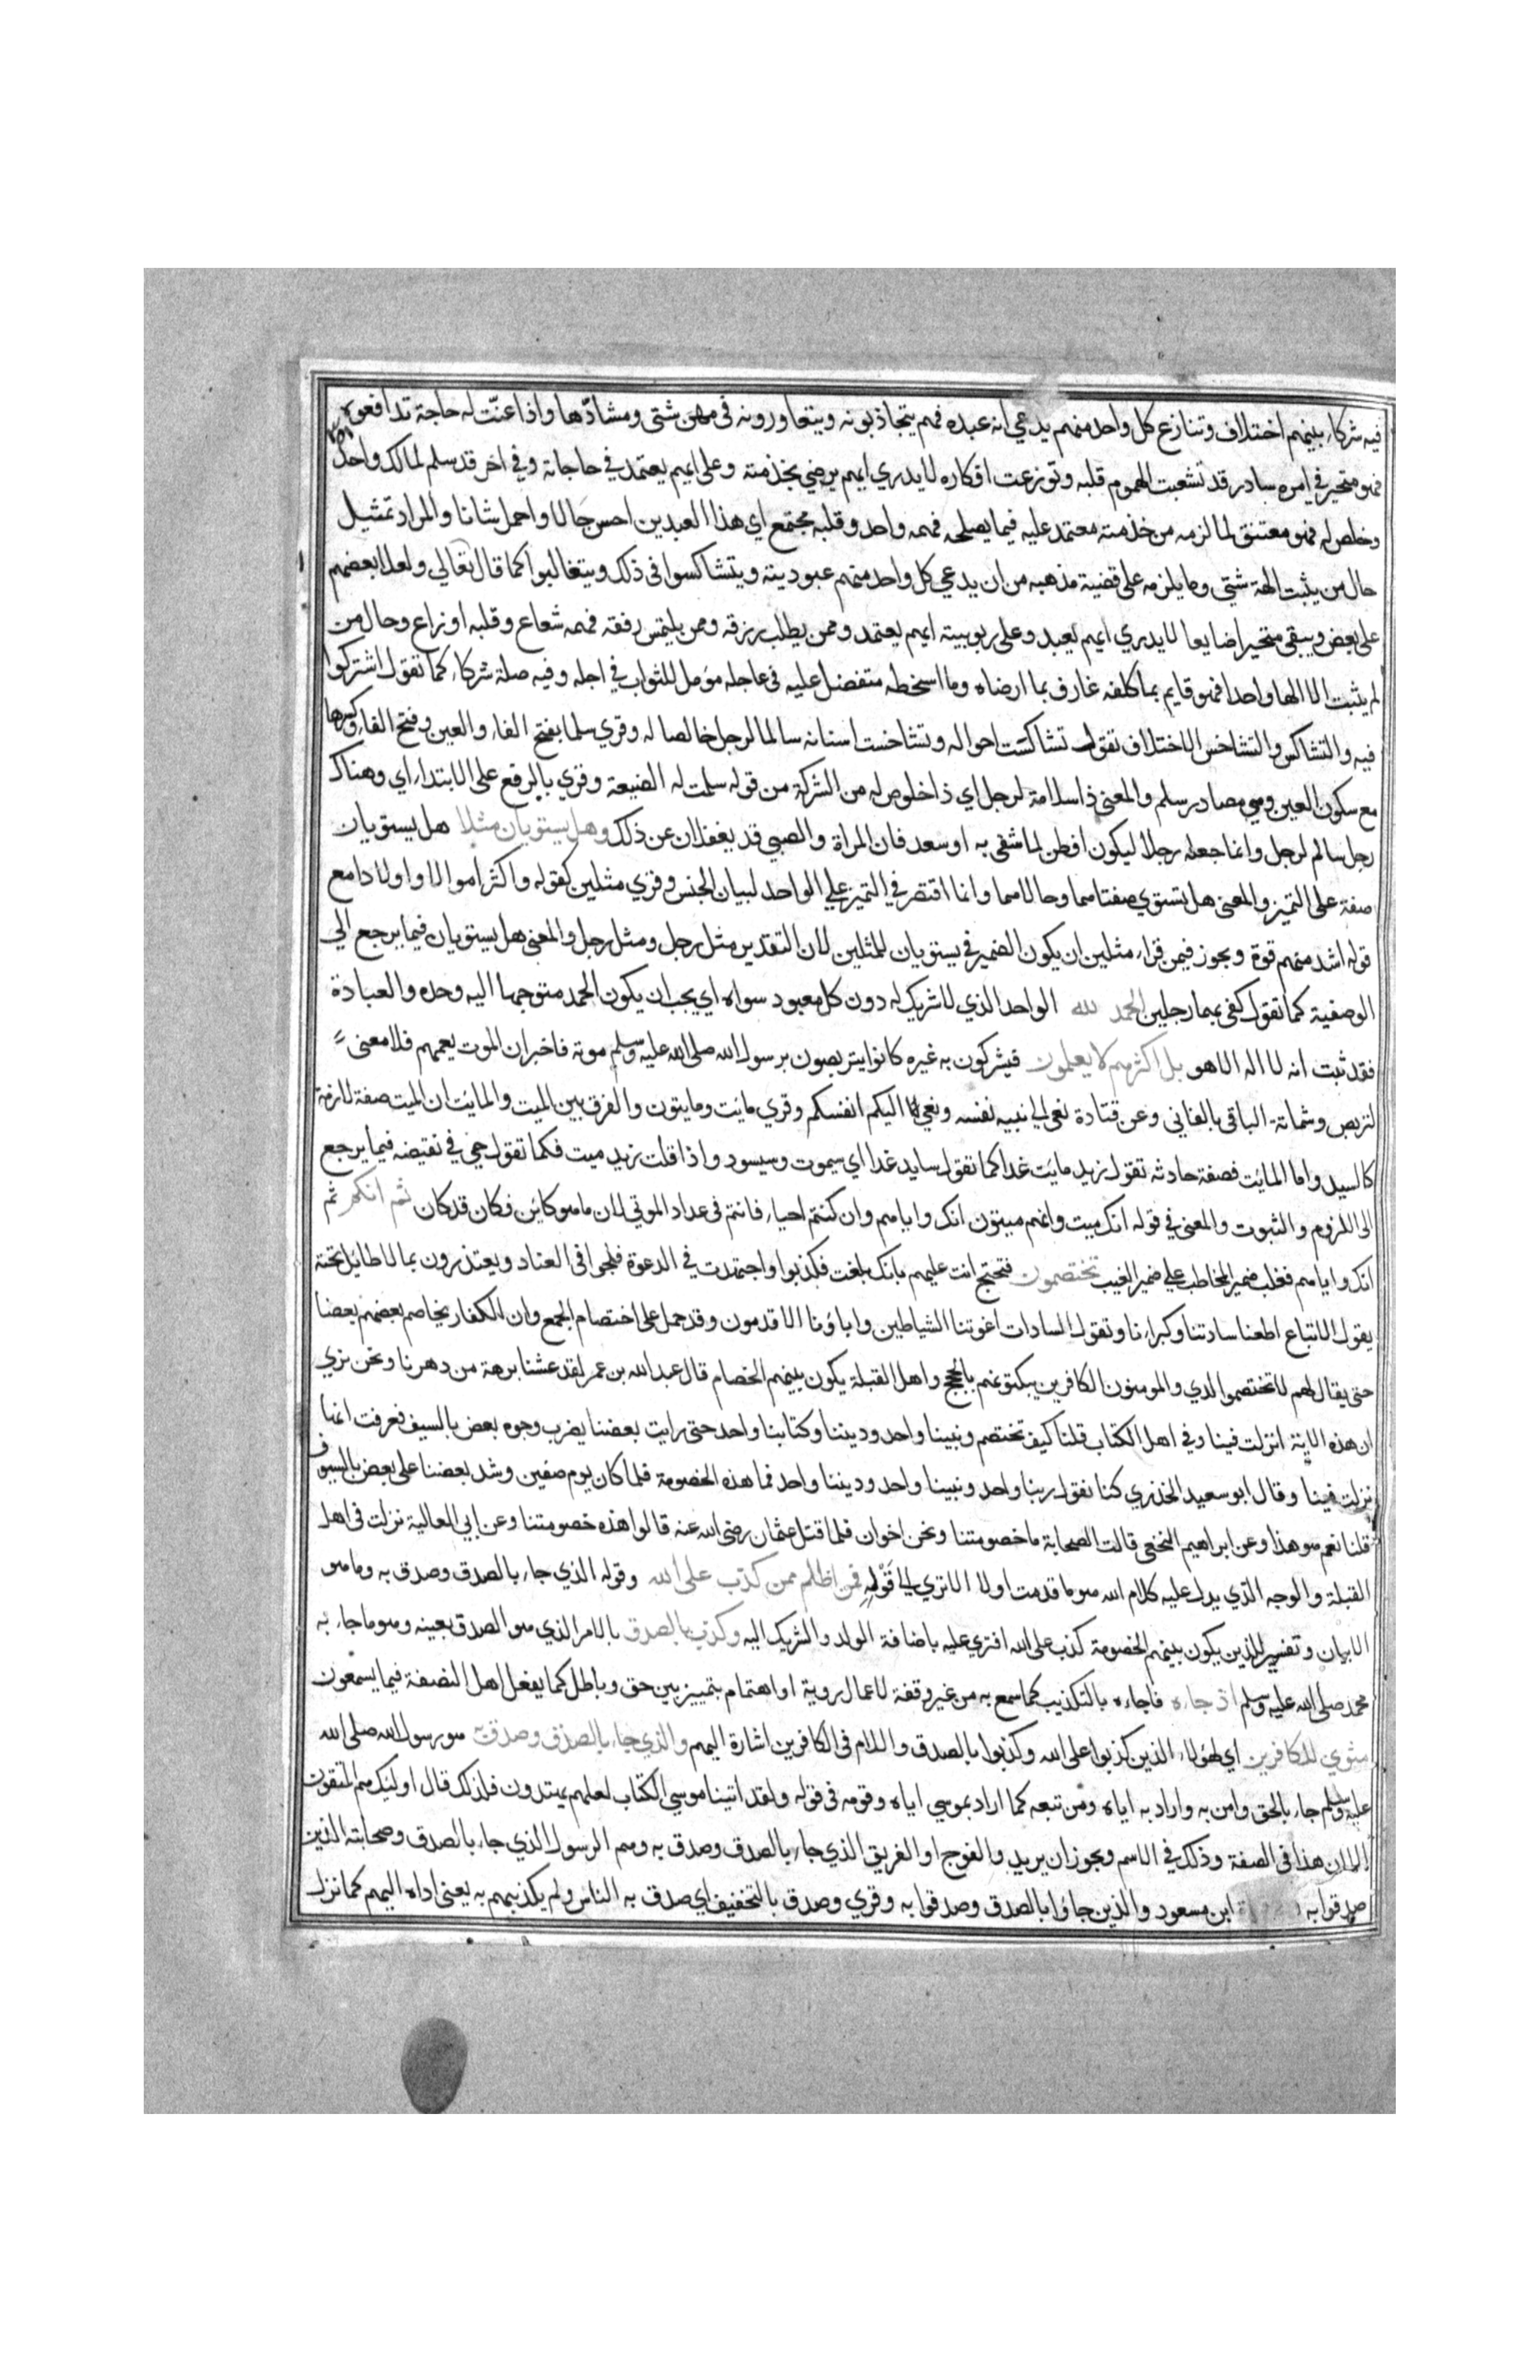 فيه شركاء بينهم اختلاف وتنازع كل واحد منهم يدعي انه عبده فهم يتجاذبونه ويتعاورونه في مهن شتى ومشادّها واذا عنّت له حاجة تدافعوه
فهو متحير في امره سادر قد تشعبت الهموم قلبه وتوزعت افكاره لا يدري ايهم يرضي بخدمته وعلى ايهم يعتمد في حاجاته وفي اخر قد سلم لمالك واحد
وخلص له فهو معتنق لما لزمه من خدمته معتمد عليه فيما يصلحه فهمه واحد وقلبه مجتمع اي هذا العبدين احسن حالا واجمل شانا والمراد تمثيل
حال من يثبت الهة شتى وما يلزمه على قضية مذهبه من ان يدعي كل واحد منهم عبوديته ويتشاكسوا في ذلك ويتغالبوا كما قال تعالي ولعلا بعضهم
على بعض ويبقى متحيرا ضايعا لا يدري ايهم يعبد وعلى ربوبيته ايهم يعتمد وممن يطلب رزقه وممن يلتمس رفقه فهمه شعاع وقلبه اوزاع وحال من
لم يثبت الا الها واحدا فهو قايم بما كلفه عارف بما ارضاه وما اسخطه متفضل عليه في عاجله مومل للثواب في اجله وفيه صلة شركاء كما تقول اشتركوا
فيه والتشاكس والتشاخس الاختلاف تقول تشاكست احواله وتشاخست اسنانه سالما لرجل خالصا له وقري سلما بفتح الفاء والعين وفتح الفاء وكسرها
مع سكون العين وهي مصادر سلم والمعنى ذا سلامة لرجل اي ذا خلوص له من الشركة من قوله سلمت له الضيعة وقري بالرفع على الابتداء اي وهناك
رجل سالم لرجل وانما جعله رجلا ليكون افطن لما شقى به او سعد فان المراة والصبي قد يغفلان عن ذلك وهل يستويان مثلا هل يستويان
صفة على التميز والمعنى هل يستوي صفتاهما وحالاهما وانما اقتصر في التميز علي الواحد لبيان الجنس وقري مثلين كقوله واكثر اموالا واولادا مع
قوله اشد منهم قوة ويجوز فيمن قراء مثلين ان يكون الضمير في يستويان للمثلين لان التقدير مثل رجل ومثل رجل والمعنى هل يستويان فيما يرجع الي
الوصفية كما تقول كفى بهما رجلين الحمد لله الواحد الذي لا شريك له دون كل معبود سواه اي يجب ان يكون الحمد متوجها اليه وحده والعبادة
فقد ثبت انه لا اله الا هو بل اكثرهم لا يعلمون فيشركون به غيره كانوا يتربصون برسول الله صلى الله عليه وسلم موته فاخبر ان الموت يعمهم فلا معنى
لتربص وشماتة الباقي بالفاني وعن قتادة نعى الي نبيه نفسه ونعي اليكم انفسكم وقري مائت ومايتون والفرق بين الميت والمائت ان الميت صفة لازمة
كالسيد واما المائت فصفة حادثه تقول زيد مائت غدا كما تقول سايد غدا اي سيموت وسيسود واذا قلت زيد ميت فكما تقول حي في نقيضه فيما يرجع
الى اللزوم والثبوت والمعنى في قوله انك ميت وانهم ميتون انك واياهم وان كنتم احياء فانتم في عداد الموتي لان ما هو كائن فكان قد كان ثم انكم ثم
انك واياهم فغلب ضمير المخاطب علي ضمير الغيب تختصمون فتحتج انت عليهم بانك بلغت فكذبوا واجتهدت في الدعوة فلجوا في العناد ويعتذرون بما لا طائل تحته
يقول الاتباع اطعنا سادتنا وكبراءنا وتقول السادات اغوتنا الشياطين واباؤنا الاقدمون وقد حمل على اختصام الجمع وان الكفار يخاصم بعضهم بعضا
حتى يقال لهم لا تختصموا لدي والمومنون الكافرين يبكتونهم بالحجج واهل القبلة يكون بينهم الخصام قال عبد الله بن عمر لقد عشنا برهة من دهرنا ونحن نري
ان هذه الاية انزلت فينا وفي اهل الكتاب قلنا كيف نختصم ونبينا واحد وديننا وكتابنا واحد حتى رايت بعضنا يضرب وجوه بعض بالسيف فعرفت انها
نزلت فينا وقال ابو سعيد الخذري كنا نقول ربنا واحد ونبينا واحد وديننا واحد فما هذه الخصومة فلما كان يوم صفين وشد بعضنا على بعض بالسيوف
قلنا نعم هو هذا وعن ابراهيم النخعي قالت الصحابة ما خصومتنا ونحن اخوان فلما قتل عثمان رضى الله عنه قالوا هذه خصومتنا وعن ابي العالية نزلت في اهل
القبلة والوجه الذي يدل عليه كلام الله هو ما قدمت اولا الا تري الي قوله فمن اظلم ممن كذب على الله وقوله الذي جاء بالصدق وصدق به وما هو
الا بيان وتفسير للذين يكون بينهم الخصومة كذب على الله افتري عليه باضافة الولد والشريك اليه وكذب بالصدق بالامر الذي هو الصدق بعينه وهو ما جاء به
محمد صلى الله عليه وسلم اذ جاءه فاجاءه بالتكذيب كما سمع به من غير وقفة لاعمال روية او اهتمام بتمييز بين حق وباطل كما يفعل اهل النصفة فيما يسمعون
مثوي للكافرين اي لهؤلاء الذين كذبوا على الله وكذبوا بالصدق واللام في الكافرين اشارة اليهم والذي جاء بالصدق وصدق به هو رسول الله صلى الله
عليه وسلم جاء بالحق وامن به واراد به اياه ومن تبعه كما اراد بموسي اياه وقومه في قوله ولقد اتينا موسي الكتاب لعلهم يهتدون فلذلك قال اوليك هم المتقون
الا ان هذا في الصفة وذلك في الاسم ويجوز ان يريد والفوج او الفريق الذي جاء بالصدق وصدق به وهم الرسول الذي جاء بالصدق وصحابته الذين
صدقوا به ابن مسعود والذين جاؤا بالصدق وصدقوا به وقري وصدق بالتخفيف اي صدق به الناس ولم يكذبهم به يعني اداه اليهم كما نزل